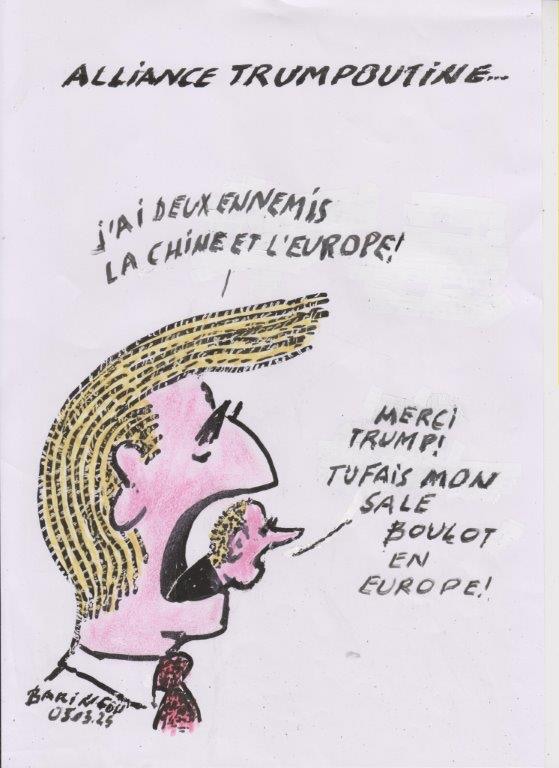 ALLIANCE TRUMPOUTINE...
J'AI DEUX ENNEMIS
LA CHINE ET L'EUROPE!
MERCI
TRUMP!
TU FAIS MON
SALE
BOULOT
EN
EUROPE!
BARINGOU